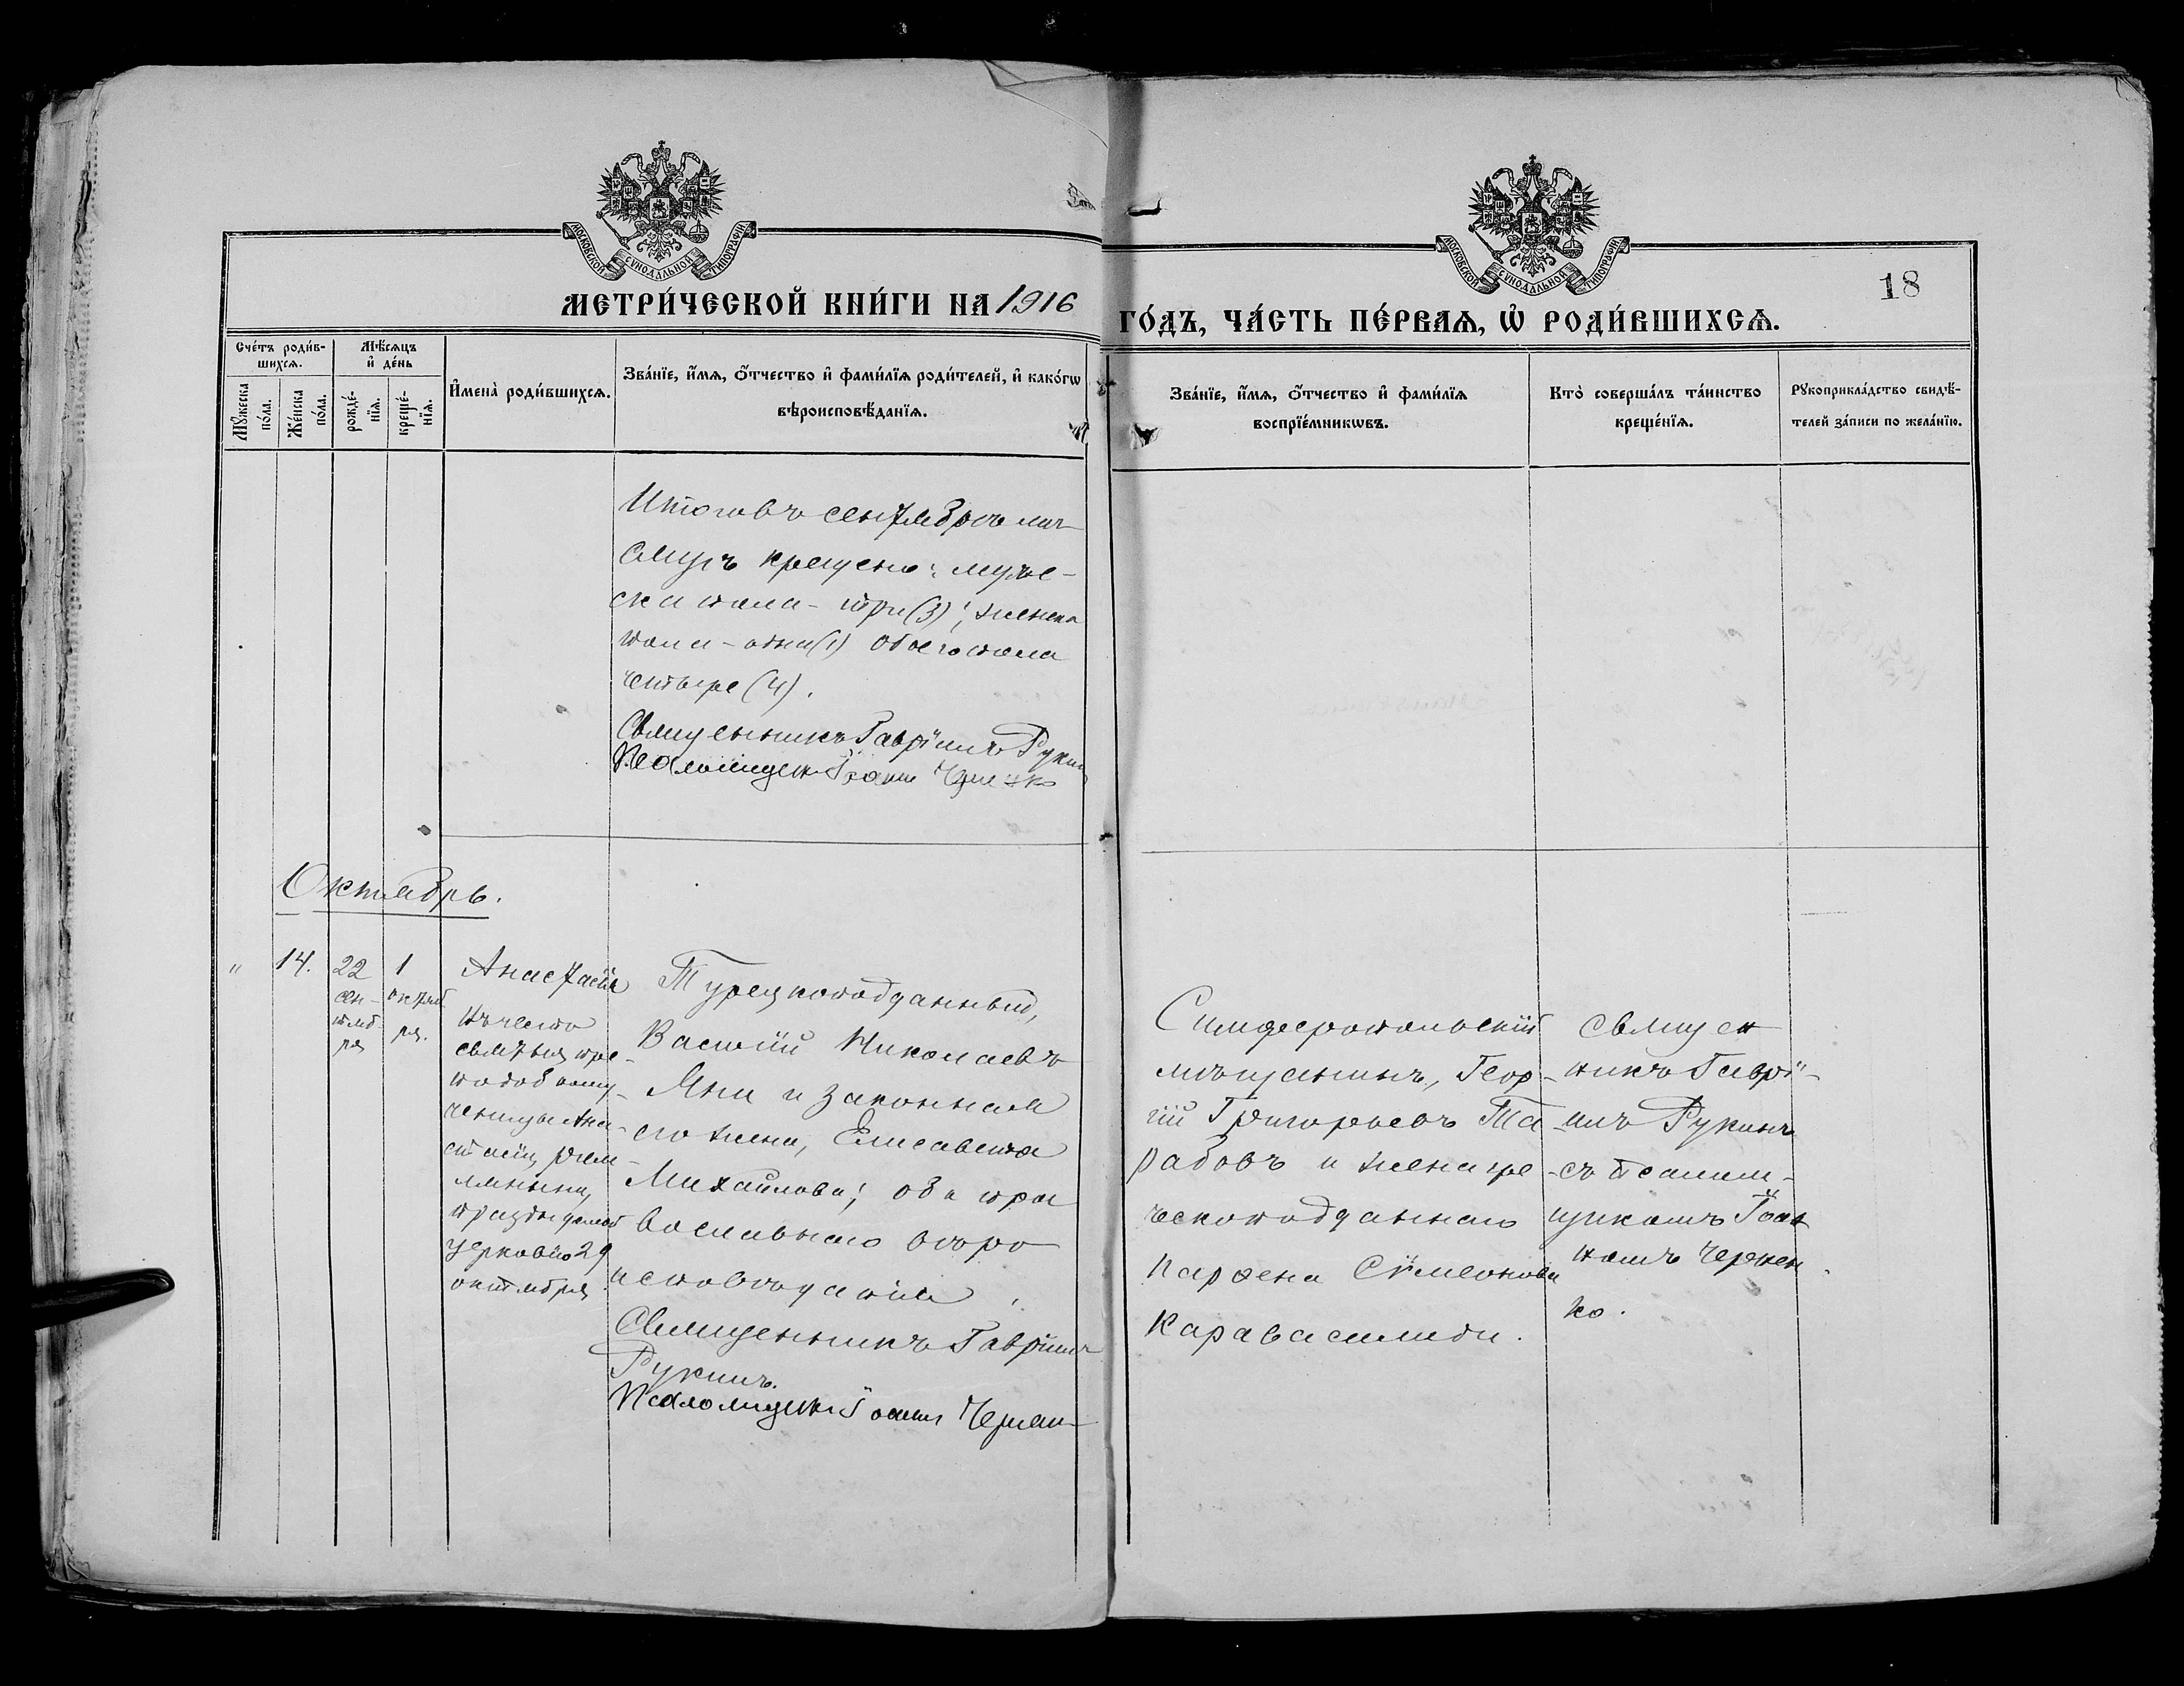 МОСКОВСКОЙ СѴНОДАЛЬНОЙ ТИПОГРАФІИ
МОСКОВСКОЙ СѴНОДАЛЬНОЙ ТИПОГРАФІИ
18
МЕТРИ́ЧЕСКОЙ КНИ́ГИ НА 1916
ГО́ДЪ, ЧА́СТЬ ПЕ́РВАЯ, Ѽ РОДИ́ВШИХСЯ.
Сче́тъ роди́в-
шихся.
Мѣ́сяцъ
и҆ де́нь
Мꙋ́жеска
по́ла.
Же́нска
по́ла.
рожде́-
нїя.
креще́-
нїя.
И҆мена̀ роди́вшихся.
Зва́нїе, и҆́мя, ѻ҆́тчество и҆ фами́лїя роди́телей, и҆ како́гѡ
вѣроисповѣ́данїя.
Зва́нїе, и҆́мя, ѻ҆́тчество и҆ фами́лїя
воспрїе́мникѡвъ.
Кто̀ соверша́лъ та́инство
креще́нїя.
Рꙋкоприкла́дство свидѣ́-
телей за́писи по жела́нїю.
Итого въ сентябрѣ мѣ-
сяцѣ крещено: муже-
ска пола - три (3); женска
пола - одна (1) обоего пола
четыре (4).
Священникъ Гавріилъ Рукин
Псаломщикъ Іоаннъ
Октябрь.
" 14.
22
сен-
тяб-
ря
1
октяб
ря.
Анастасія
въ честь
святыя пре-
подобному-
ченицы Ана-
стасіи, рим-
лянини,
празднуемой
церковію 29
октября.
Турецкоподданный,
Василій Николаевъ
Яни и законная
его жена, Елисавета
Михайлова; оба пра
вославнаго вѣро
исповѣданія.
Священникъ Гавріилъ
Рукинъ.
Псаломщикъ Іоаннъ
Симферопольскій
мѣщанинъ, Геор-
гій Григорьевъ Та
рабовъ и жена гре
ческоподданнаго
Парѳена Сѵмеонова
Каравасилиди.
Священ
никъ Гаврі-
илъ Рукинъ
съ псалом-
щикомъ Іоан
номъ Чернен
ко.